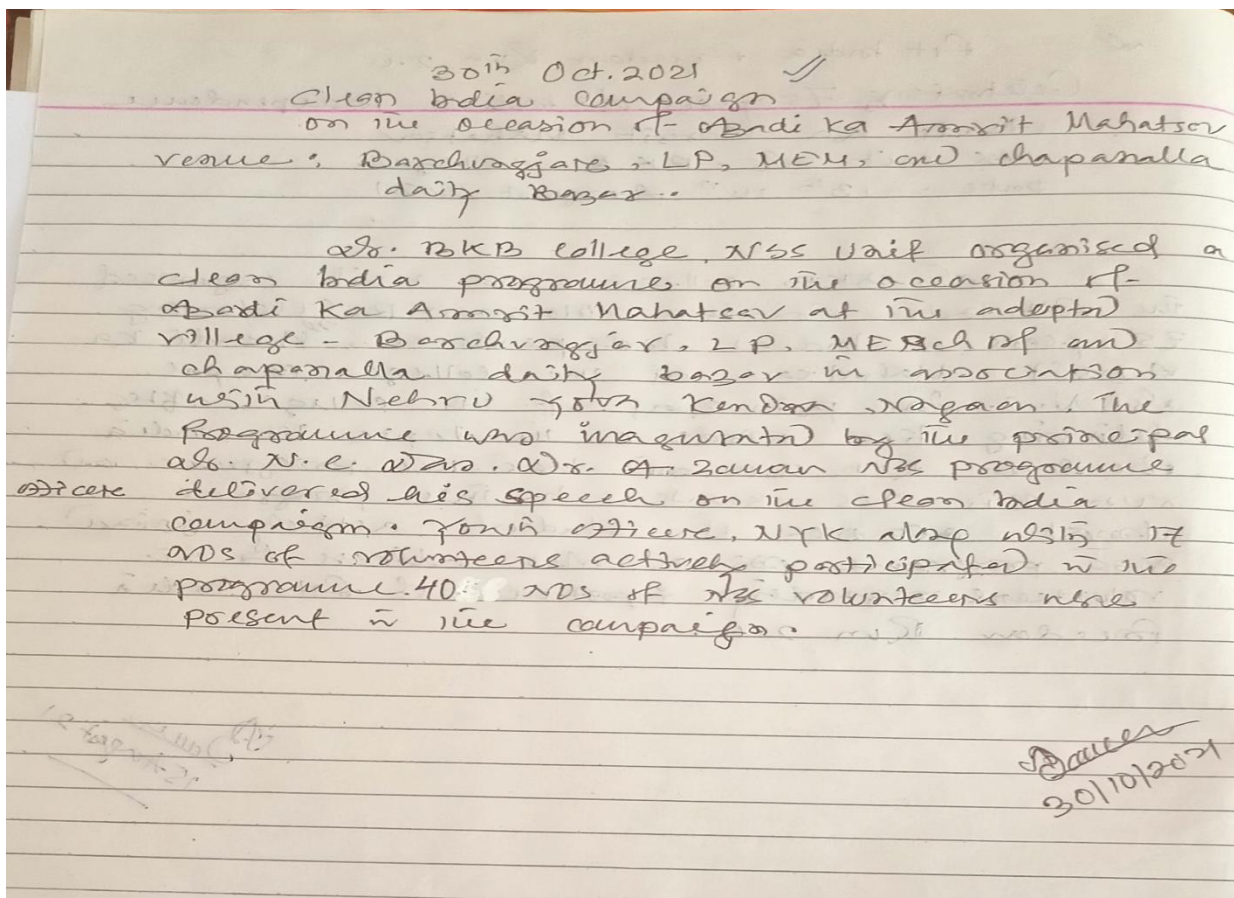 30th Oct. 2021
Clean India Campaign
on the occasion of Azadi Ka Amrit Mahatsov
venue: Barchungjar, LP, MEM, and Chapanalla
daily Bazar..
Dr. BKB College, NSS Unit organised a
clean India programme on the occasion of
Azadi Ka Amrit Mahatsav at the adopted
village - Barchungjar, LP, ME and
chapanalla daily bazar in association
with Nehru Yuva Kendra, Nagaon. The
Programme was inagurated by the principal
Dr. N. C. Das. Dr. A. Zaman NSS programme
officer delivered his speech on the clean India
campaign. Youth officer, NYK along with 17
nos of volunteers actively participated in the
programme. 40 nos of NSS volunteers were
present in the campaign.
30/10/2021